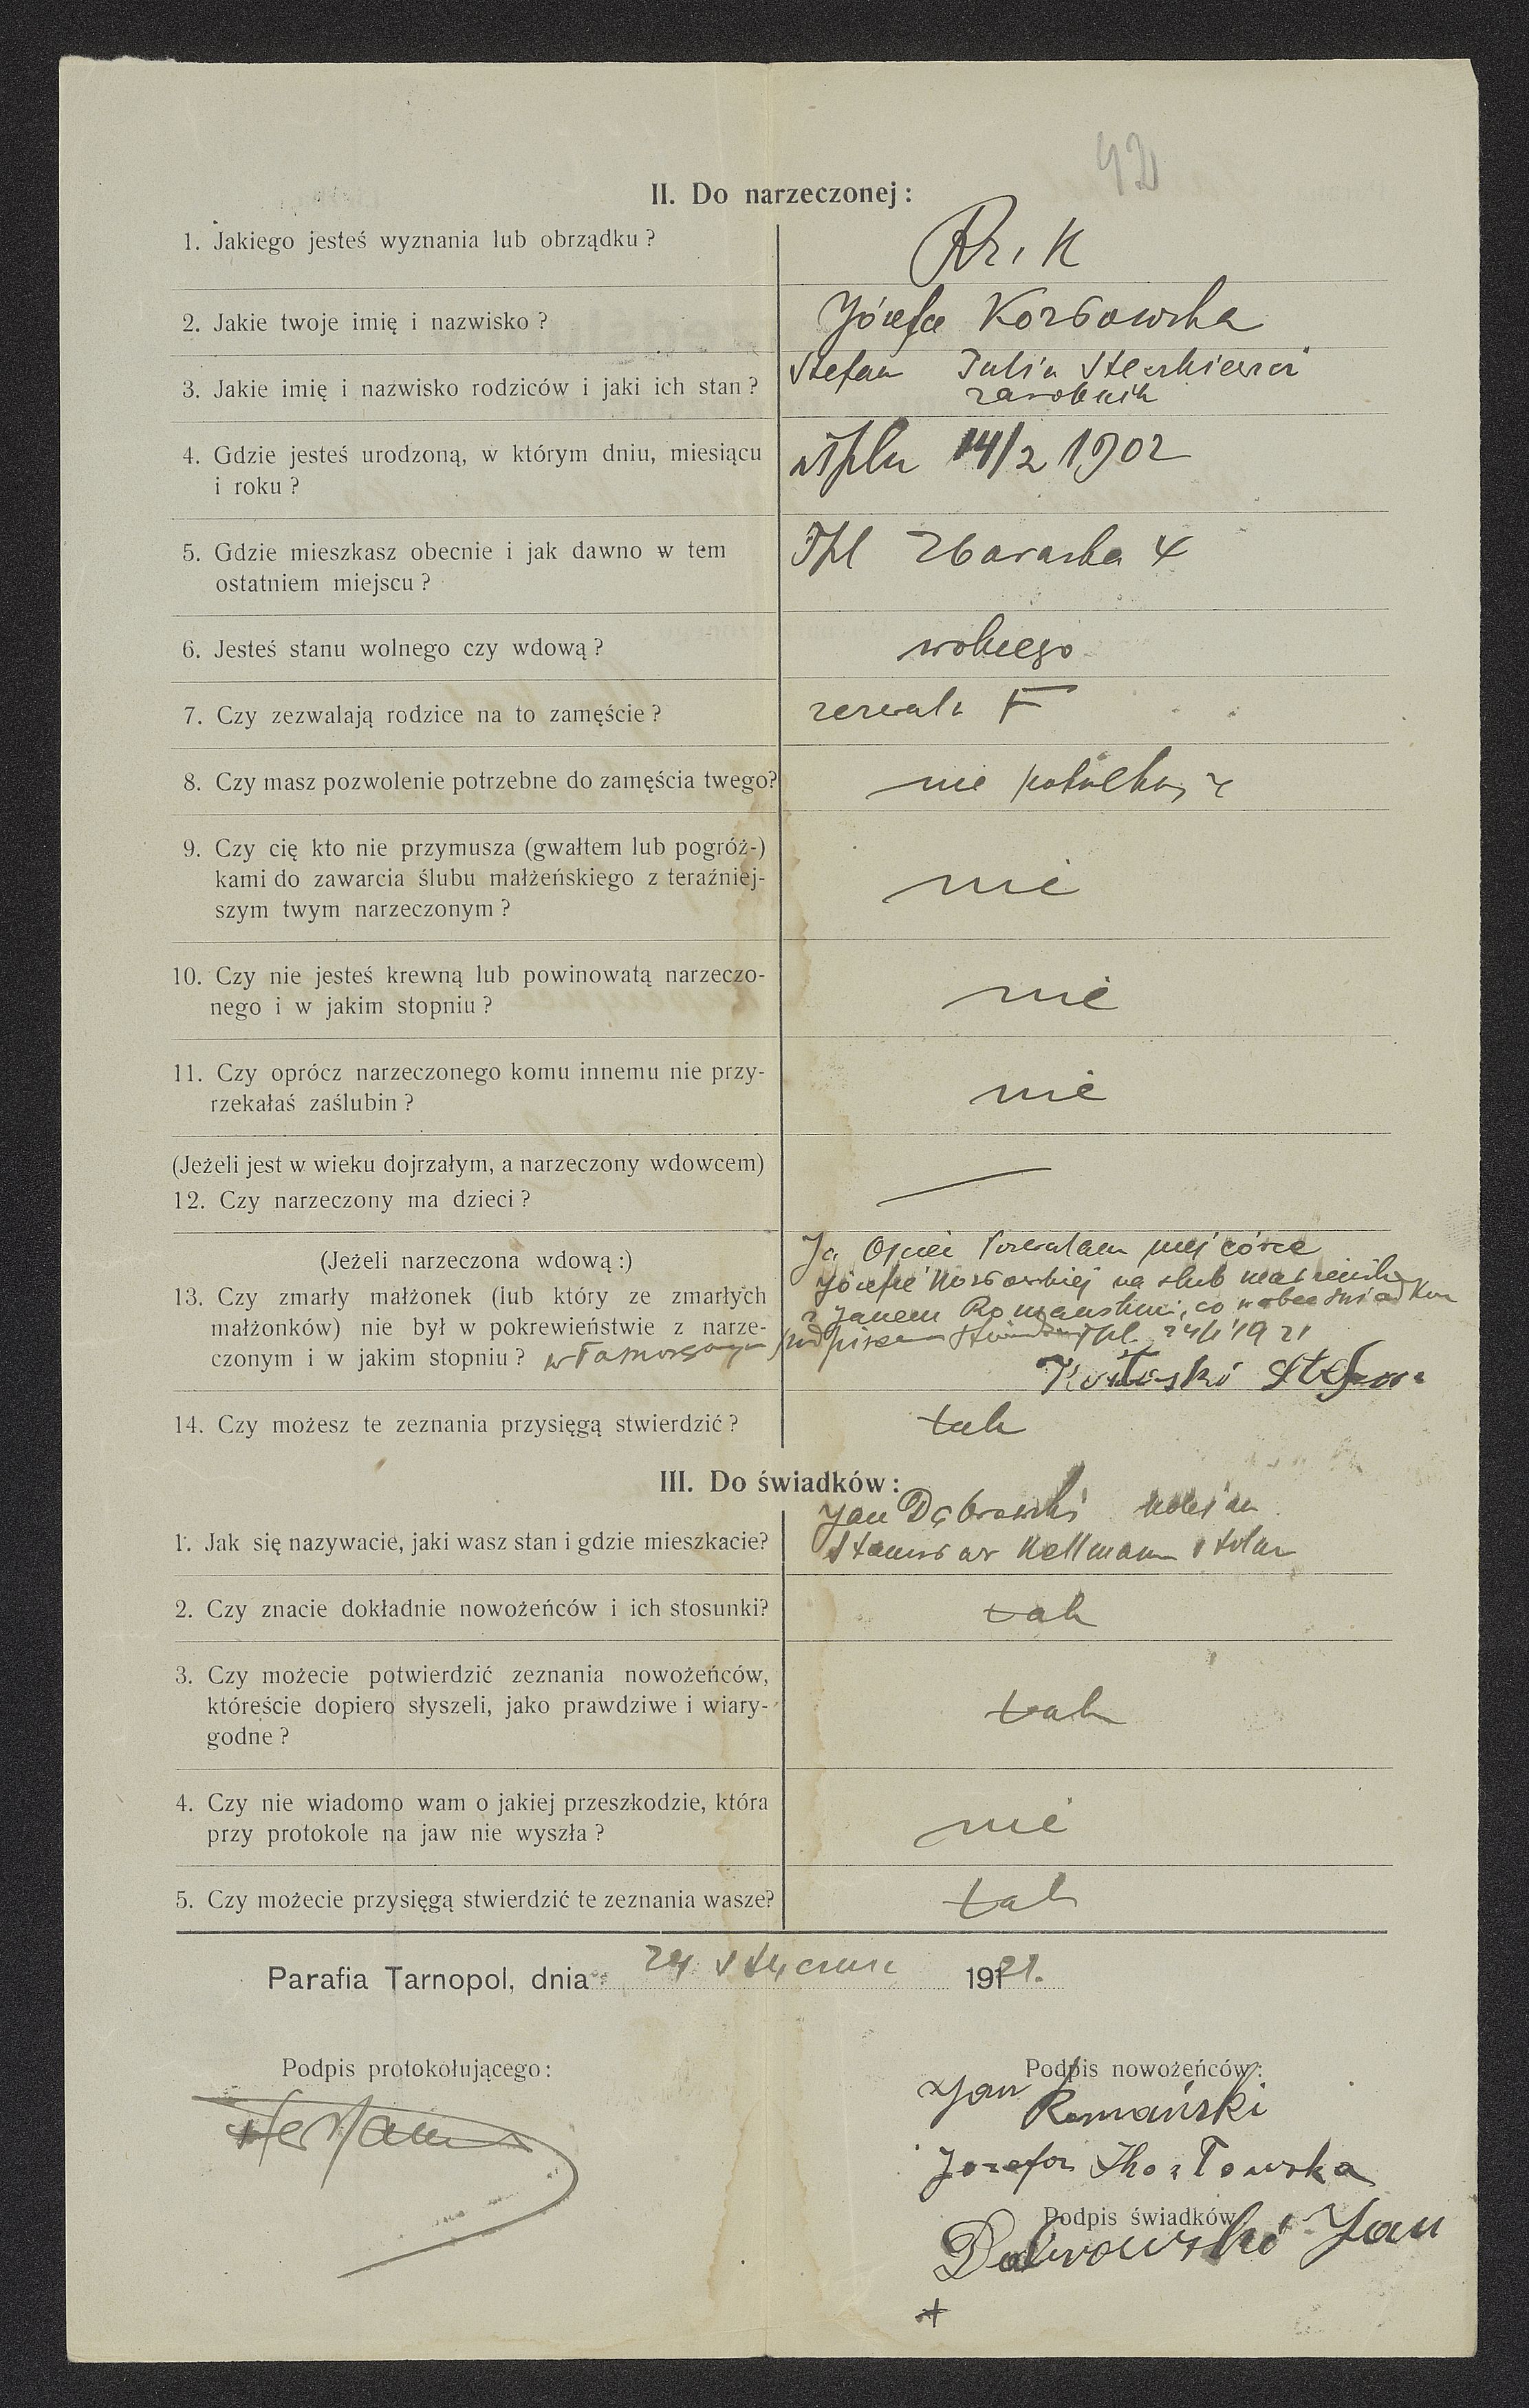 42
II. Do narzeczonej:
1. Jakiego jesteś wyznania lub obrządku?
Rz. K
2. Jakie twoje imię i nazwisko?
Józefa Kozłowska
3. Jakie imię i nazwisko rodziców i jaki ich stan?
Stefan Julia
zarobnik
4. Gdzie jesteś urodzoną, w którym dniu, miesiącu
i roku?
w Tplu 14/2 1902
5. Gdzie mieszkasz obecnie i jak dawno w tem
ostatniem miejscu?
Tpl Zbaraska 4
6. Jesteś stanu wolnego czy wdową?
wolnego
7. Czy zezwalają rodzice na to zamęście?
8. Czy masz pozwolenie potrzebne do zamęścia twego?
nie
9. Czy cię kto nie przymusza (gwałtem lub pogróż-)
kami do zawarcia ślubu małżeńskiego z teraźniej-
szym twym narzeczonym?
nie
10. Czy nie jesteś krewną lub powinowatą narzeczo-
nego i w jakim stopniu?
nie
11. Czy oprócz narzeczonego komu innemu nie przy-
rzekałaś zaślubin?
nie
(Jeżeli jest w wieku dojrzałym, a narzeczony wdowcem)
12. Czy narzeczony ma dzieci?
(Jeżeli narzeczona wdową:)
13. Czy zmarły małżonek (lub który ze zmarłych
małżonków) nie był w pokrewieństwie z narze-
czonym i w jakim stopniu?
Ja Ojciec zezwalam mej córce
Józefie Kozłowskiej na ślub
z Janem Romańskim, co wobec świadków
własnoręcznym podpisem stwierdzam Tpl 24/1 1921
Stefan
14. Czy możesz te zeznania przysięgą stwierdzić?
tak
III. Do świadków:
1. Jak się nazywacie, jaki wasz stan i gdzie mieszkacie?
Jan Dąbrowski
Stanisław Kellmann stolarz
2. Czy znacie dokładnie nowożeńców i ich stosunki?
tak
3. Czy możecie potwierdzić zeznania nowożeńców,
któreście dopiero słyszeli, jako prawdziwe i wiary-
godne?
tak
4. Czy nie wiadomo wam o jakiej przeszkodzie, która
przy protokole na jaw nie wyszła?
nie
5. Czy możecie przysięgą stwierdzić te zeznania wasze?
tak
Parafia Tarnopol, dnia 24 stycznia 1921.
Podpis protokołującego:
Podpis nowożeńców:
Jan
Romański
Józefa Kozłowska
Podpis świadków
Dabrowski Jan